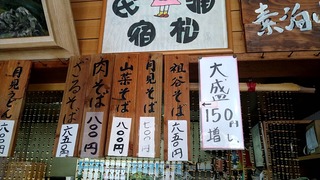 民宿
松浦
素泊
大盛
150円
増し
祖谷そば
六五〇円
月見そば
七〇〇円
山菜そば
八〇〇円
肉そば
八〇〇円
ざるそば
六五〇円
月見うどん